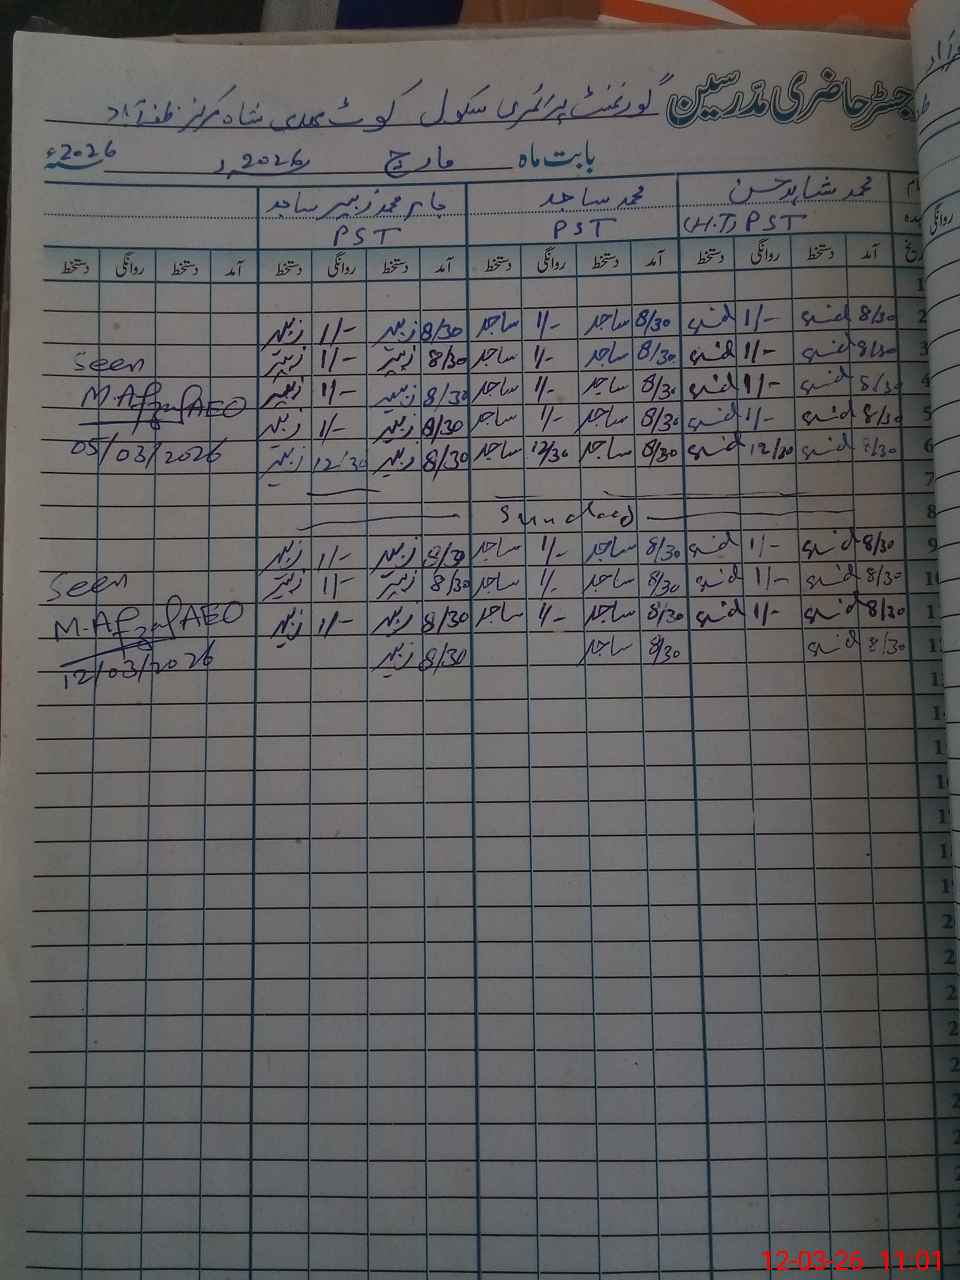 رجسٹر حاضری مدرسین گورنمنٹ پرائمری سکول کوٹ مہدی شاہ مرکز ظفر آباد
بابت ماہ مارچ 2026ء سنہ 2026ء
نام محمد شاہد حسن محمد ساجد محمد زبیر ساجد
عہدہ (H.T) PST PST PST
تاریخ آمد دستخط روانگی دستخط آمد دستخط روانگی دستخط آمد دستخط روانگی دستخط آمد دستخط روانگی دستخط
1
2 8/30 شاہد 1/- شاہد 8/30 ساجد 1/- ساجد 8/30 زبیر 1/- زبیر
3 8/30 شاہد 1/- شاہد 8/30 ساجد 1/- ساجد 8/30 زبیر 1/- زبیر Seen
4 8/30 شاہد 1/- شاہد 8/30 ساجد 1/- ساجد 8/30 زبیر 1/- زبیر M. Afzal AEO
5 8/30 شاہد 1/- شاہد 8/30 ساجد 1/- ساجد 8/30 زبیر 1/- زبیر 05/03/2026
6 8/30 شاہد 12/30 شاہد 8/30 ساجد 12/30 ساجد 8/30 زبیر 12/30 زبیر
7
8
9 8/30 شاہد 1/- شاہد 8/30 ساجد 1/- ساجد 8/30 زبیر 1/- زبیر
10 8/30 شاہد 1/- شاہد 8/30 ساجد 1/- ساجد 8/30 زبیر 1/- زبیر Seen
11 8/30 شاہد 1/- شاہد 8/30 ساجد 1/- ساجد 8/30 زبیر 1/- زبیر M. Afzal AEO
12 8/30 شاہد 8/30 ساجد 8/30 زبیر 12/03/2026
13
14
12-03-26 11:01